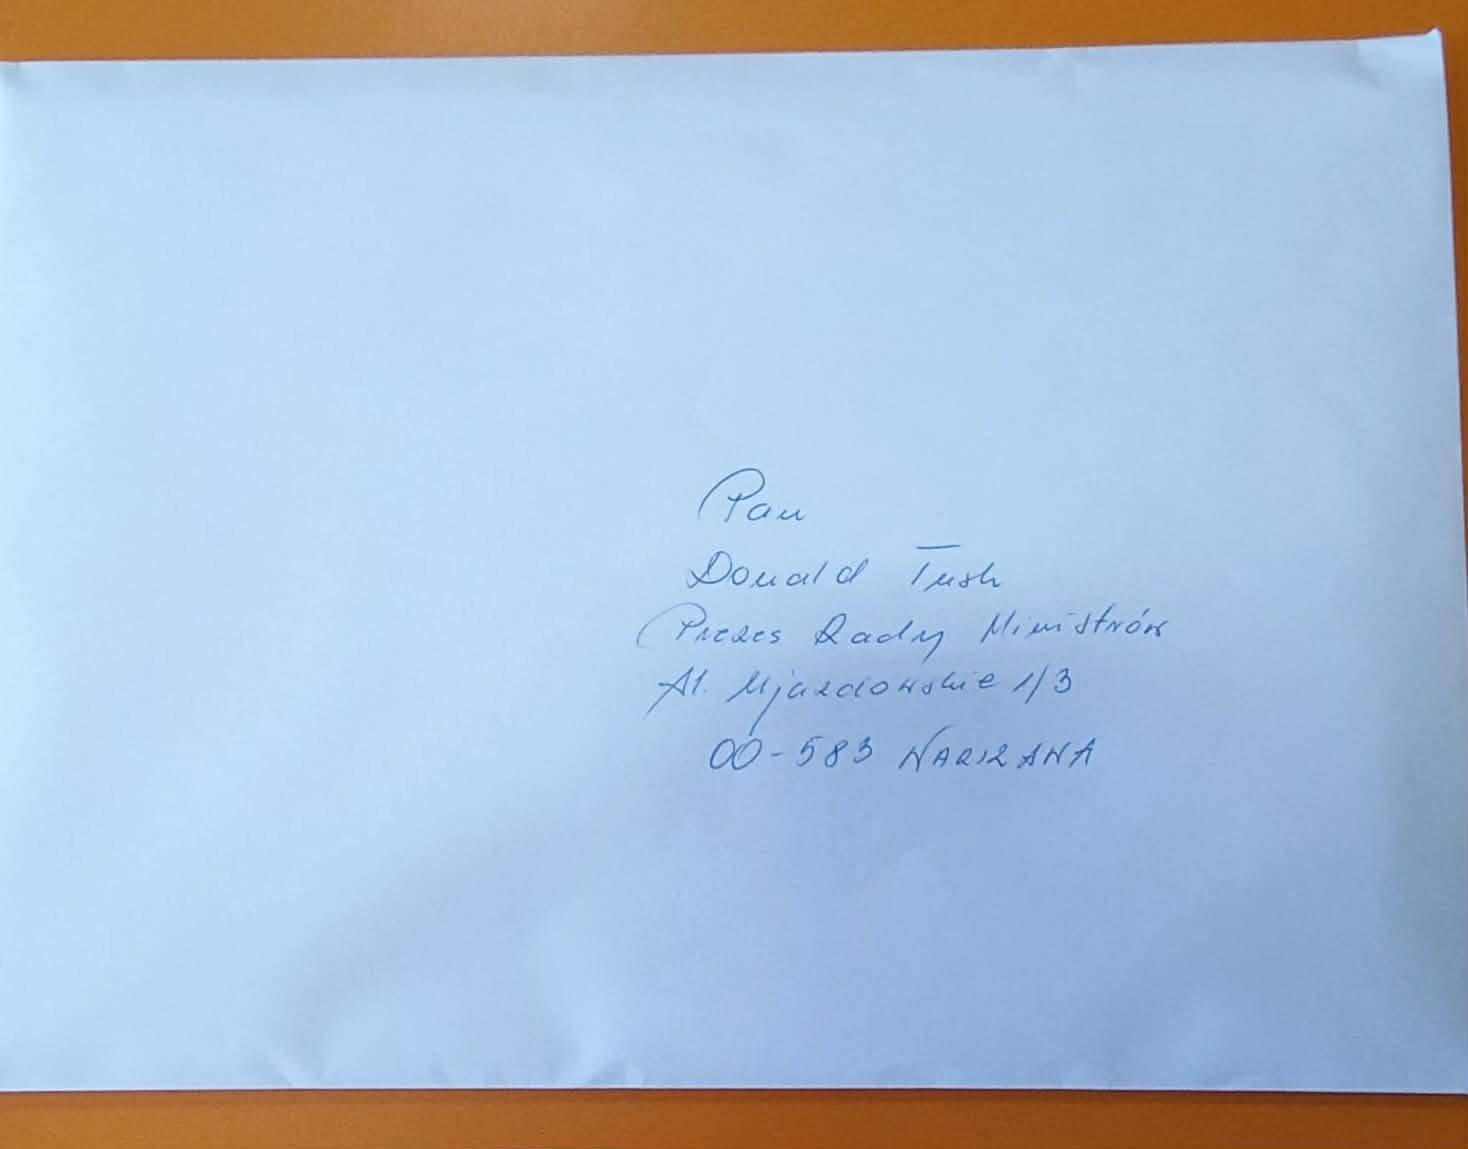 Pan
Donald Tusk
Prezes Rady Ministrów
Al. Ujazdowskie 1/3
00-583 WARSZAWA